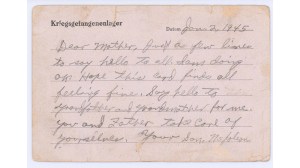 Kriegsgefangenenlager
Datum: Jan 2, 1945
Dear Mother, Just a few lines
to say hello to all. I am doing
OK. Hope this card finds all
feeling fine. Say hello to
grandfather and grandmother for me.
You and Father take care of
yourselves. Your Son,